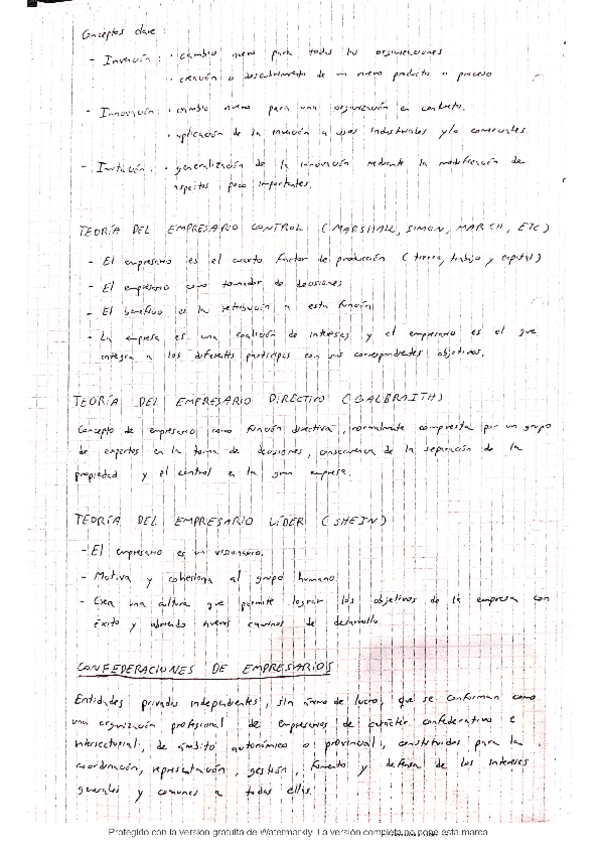 Conceptos clave :
- Invención : · cambio nuevo para todas las organizaciones
· creación o descubrimiento de un nuevo producto o proceso
- Innovación : · cambio nuevo para una organización en concreto.
· aplicación de la invención a usos industriales y/o comerciales.
- Imitación : · generalización de la innovación mediante la modificación de
aspectos poco importantes.
TEORÍA DEL EMPRESARIO CONTROL (MARSHALL, SIMON, MARCH, ETC)
- El empresario es el cuarto factor de producción (tierra, trabajo y capital)
- El empresario como tomador de decisiones
- El beneficio es la retribución a esta función
- La empresa es una coalición de intereses y el empresario es el que
integra a los diferentes partícipes con sus correspondientes objetivos.
TEORÍA DEL EMPRESARIO DIRECTIVO (GALBRAITH)
Concepto de empresario como función directiva, normalmente compuesta por un grupo
de expertos en la toma de decisiones, consecuencia de la separación de la
propiedad y el control en la gran empresa.
TEORÍA DEL EMPRESARIO LÍDER (SHEIN)
- El empresario es un visionario.
- Motiva y cohesiona al grupo humano
- Crea una cultura que permite lograr los objetivos de la empresa con
éxito y abriendo nuevos caminos de desarrollo
CONFEDERACIONES DE EMPRESARIOS
Entidades privadas independientes, sin ánimo de lucro, que se conforman como
una organización profesional de empresarios de carácter confederativo e
intersectorial, de ámbito autonómico o provincial, constituidas para la
coordinación, representación, gestión, fomento y defensa de los intereses
generales y comunes a todas ellas.
Protegido con la versión gratuita de Watermarkly. La versión completa no pone esta marca.